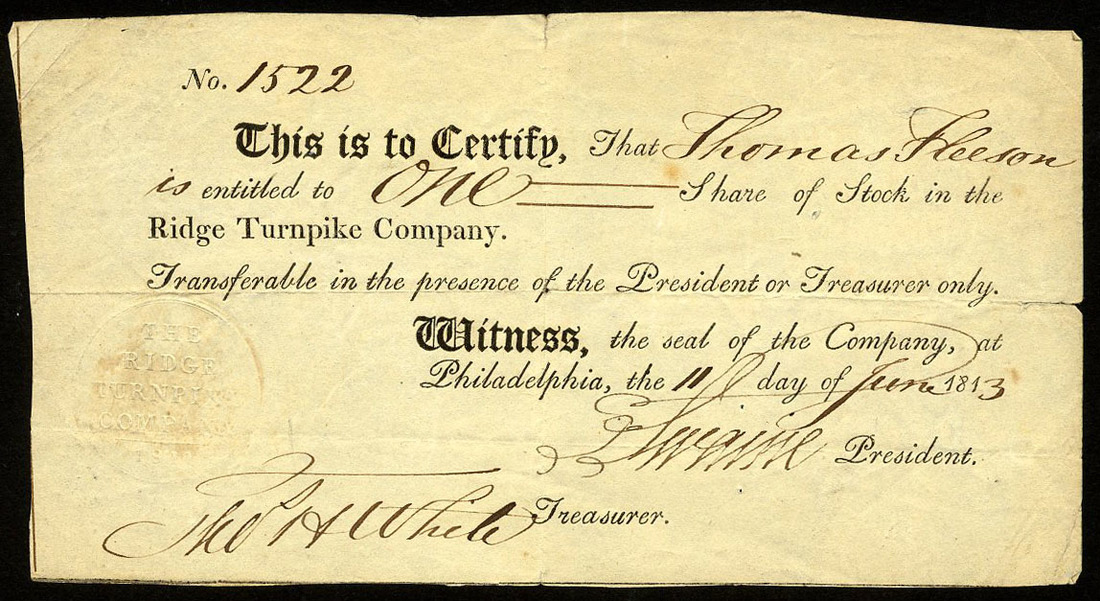 No. 1522
This is to Certify, That Thomas Fleeson
is entitled to One Share of Stock in the
Ridge Turnpike Company.
Transferable in the presence of the President or Treasurer only.
THE
RIDGE
TURNPIKE
COMPANY
Witness, the seal of the Company, at
Philadelphia, the 11th day of June 1813
Swaine President.
Thos H White Treasurer.